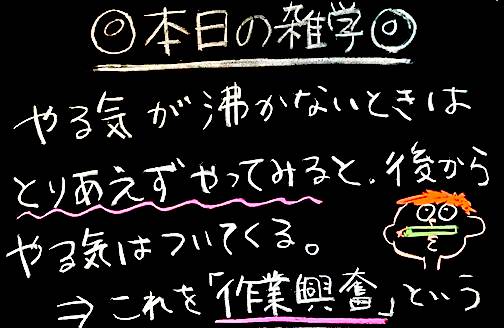 ◎本日の雑学◎
やる気が沸かないときは
とりあえずやってみると、後から
やる気はついてくる。
⇒これを「作業興奮」という